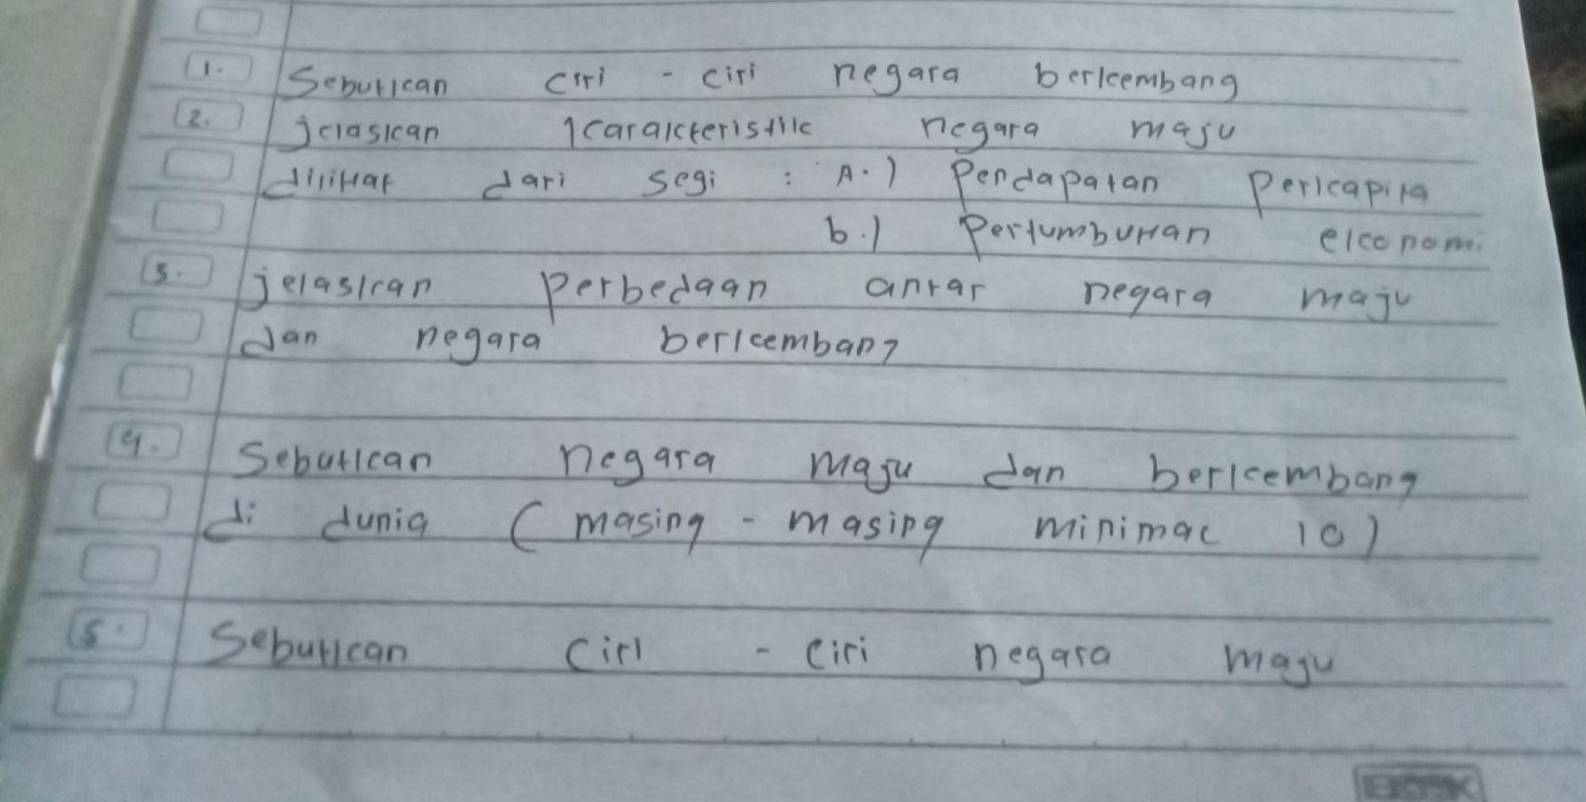 1. Sebutkan ciri - ciri negara berkembang
2. jelaskan karakteristik negara maju
dilihat dari segi : A.) Pendapatan Perkapita
b.) Pertumbuhan ekonomi
3. jelaskan Perbedaan antar negara maju
dan negara berkembang
4. Sebutkan negara maju dan berkembang
di dunia (masing - masing minimal 10)
5. Sebutkan Ciri - Ciri negara maju